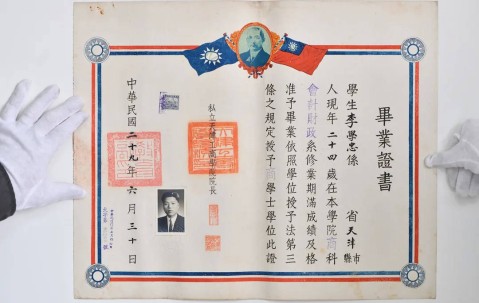 畢業證書
學生李學忠係 省天津市縣
人現年二十四歲在本學院商科
會計財政系修業期滿成績及格
准予畢業依照學位授予法第三
條之規定授予商學士學位此證
私立天津工商學院院長
中華民國二十九年六月三十日